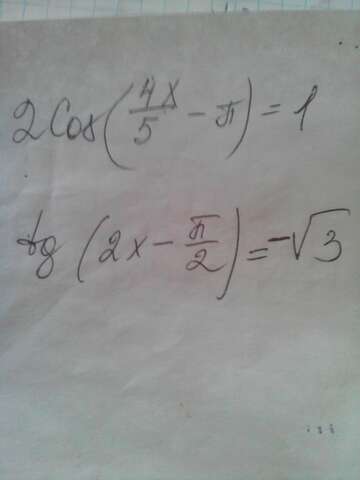 2Cos(4x/5 - π) = 1
tg(2x - π/2) = -√3